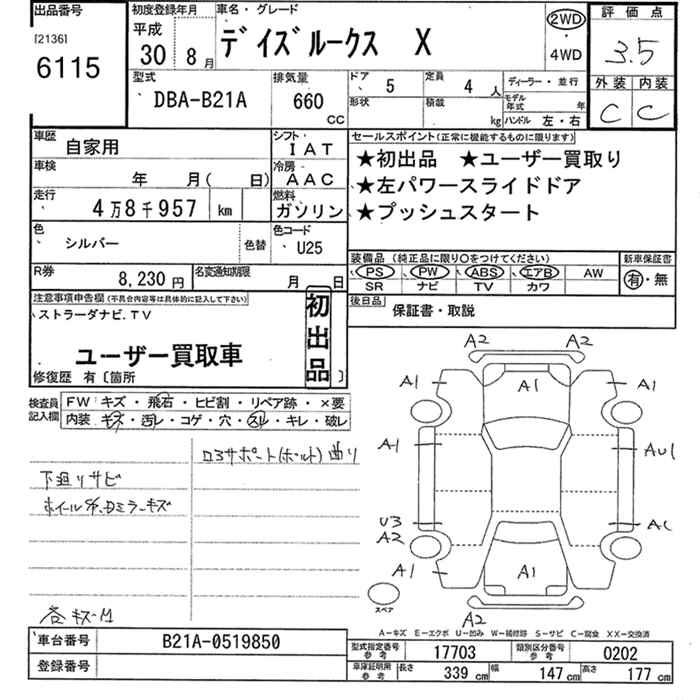 出品番号
[2136]
6115
初度登録年月
平成
30 8月
車名・グレード
デイズルークス X
2WD
・
4WD
評価点
3.5
外装 内装
C C
型式
DBA-B21A
排気量
660
CC
ドア
5
形状
定員
4 人
積載
kg
ディーラー・並行
モデル年式 年
ハンドル 左・右
車歴
自家用
シフト
IAT
車検
年 月( 日)
冷房
AAC
走行
4万8千957 km
燃料
ガソリン
色
シルバー
色替
色コード
U25
R券
8,230円
名変通知期限
月 日
セールスポイント(正常に機能するものに限ります)
★初出品 ★ユーザー買取り
★左パワースライドドア
★プッシュスタート
装備品(純正品に限り〇をつけてください)
PS PW ABS エアB AW
SR ナビ TV カワ
新車保証書
有・無
後日品
保証書・取説
注意事項申告欄(不具合内容等は具体的に記入して下さい)
ストラーダナビ.TV
ユーザー買取車
初出品
修復歴 有〔箇所 〕
検査員記入欄
FW キズ・飛石・ヒビ割・リペア跡・×要
内装 キズ・汚レ・コゲ・穴・スレ・キレ・破レ
コアサポート(ボルト)曲り
下廻りサビ
キズ
A2 A2
A1 A1 A1
A1 AU1
U3 AC
A2
A1 A1 A1
スペア
A2
A-キズ E-エクボ U-凹み W-補修跡 S-サビ C-腐食 XX-交換済
車台番号
B21A-0519850
登録番号
型式指定番号
参考
17703
類別区分番号
参考
0202
車庫証明用
参考
長さ 339 cm 幅 147 cm 高さ 177 cm